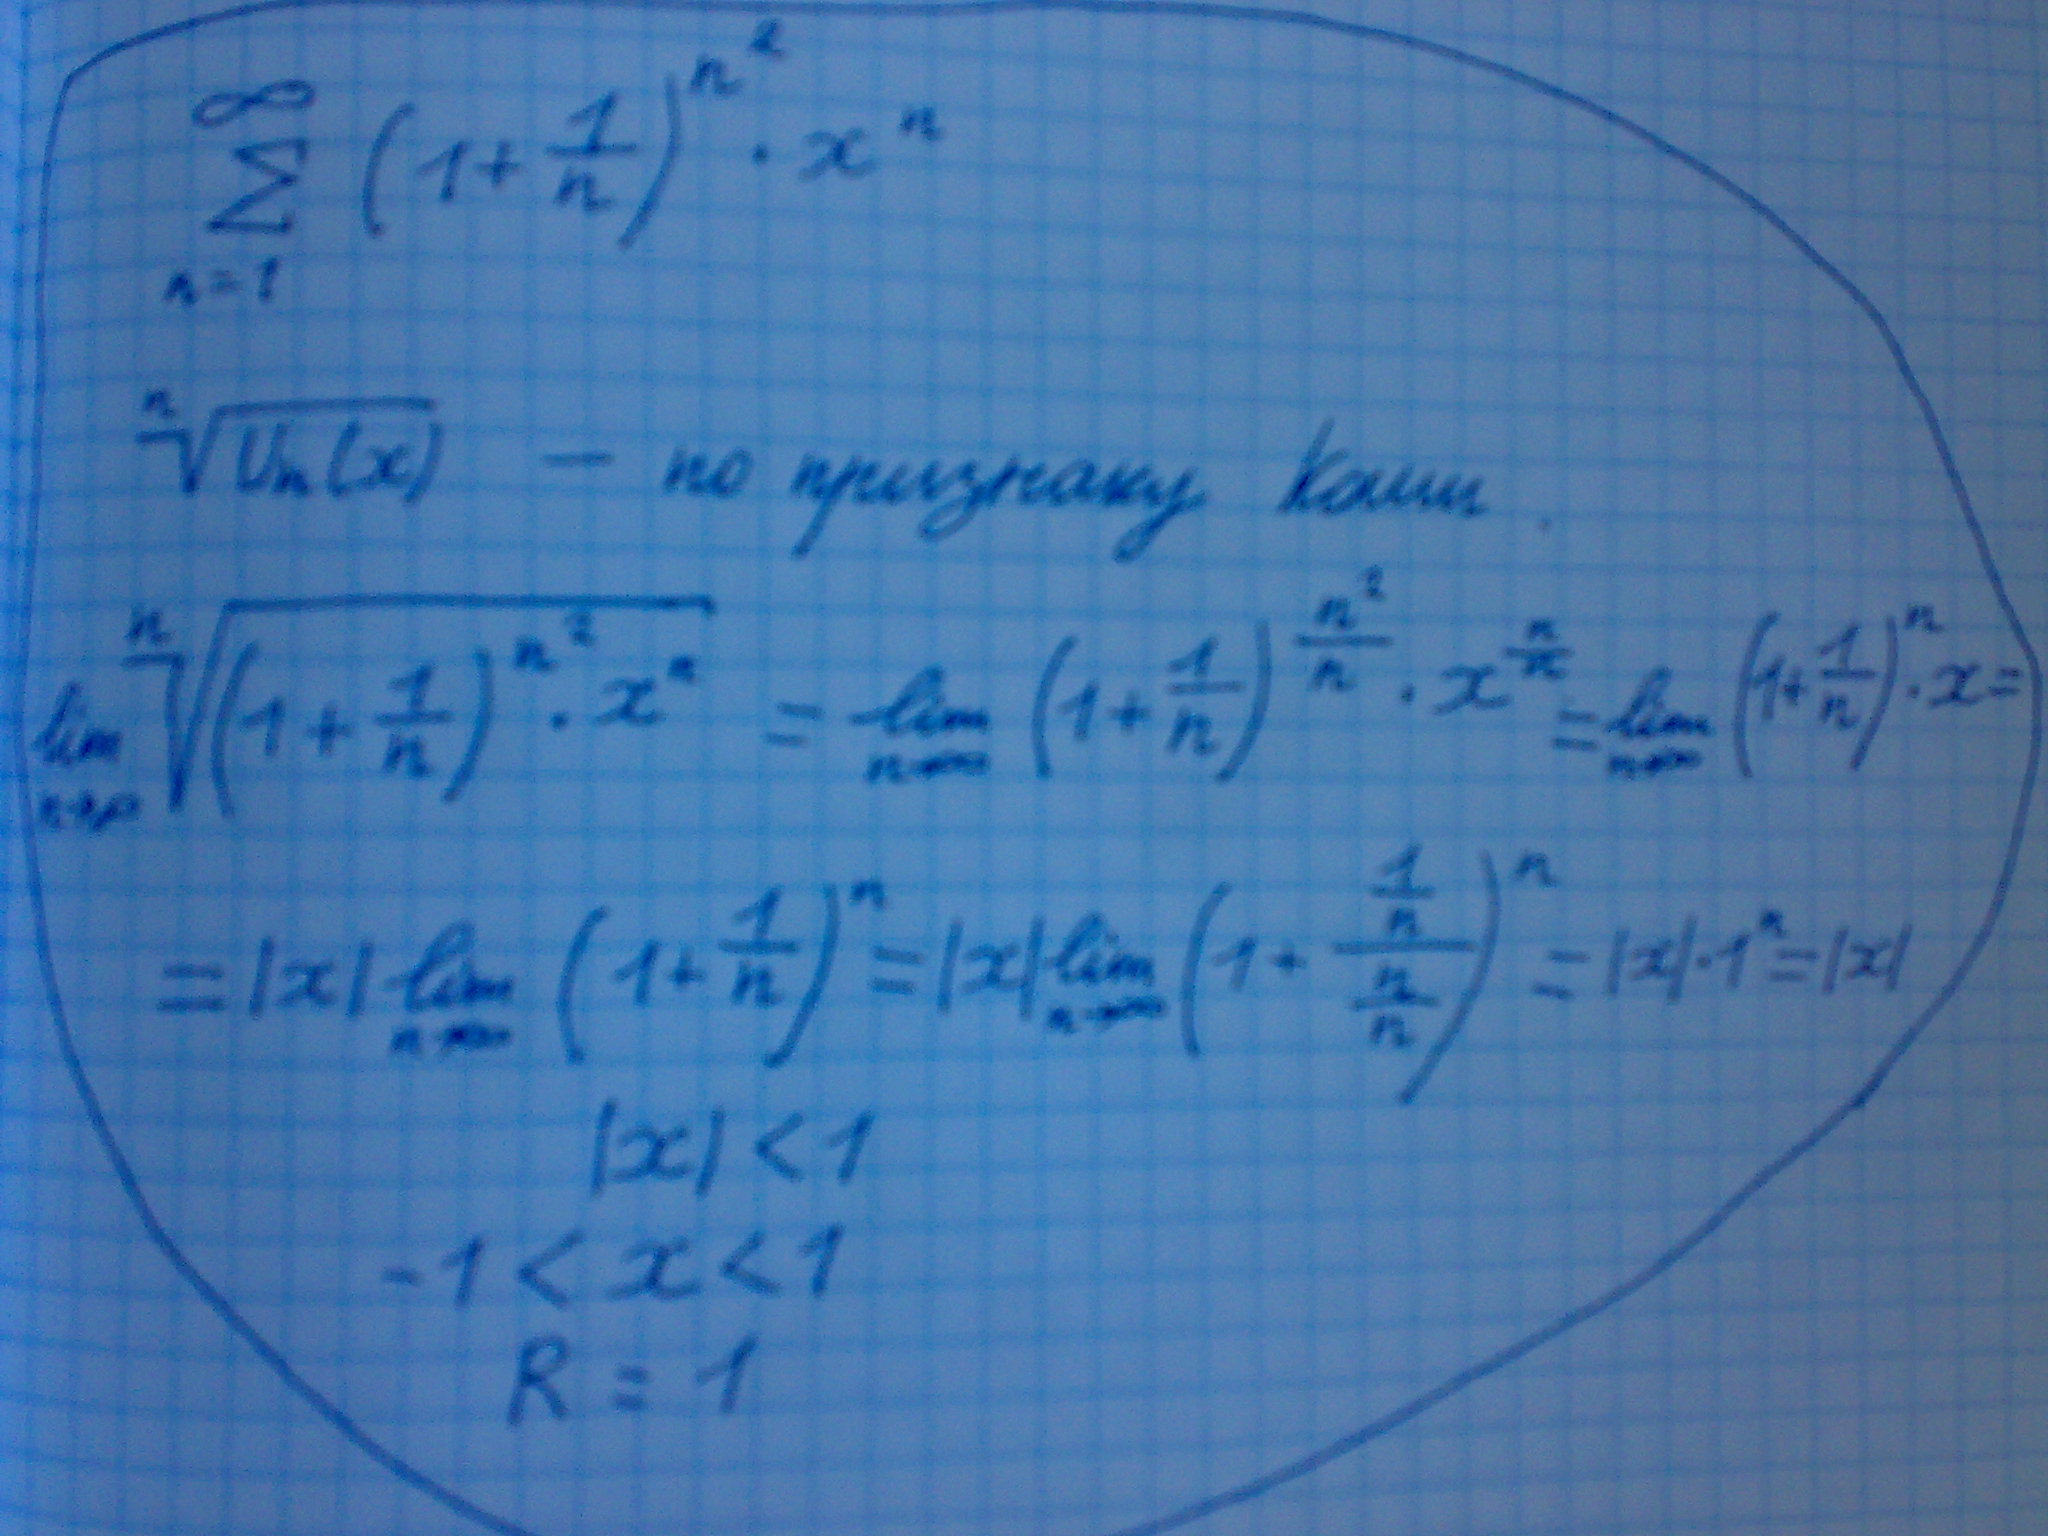 ∞
∑ (1 + 1/n)^n² · x^n
n = 1
ⁿ√Uₙ(x) — по признаку Коши.
lim n→∞ ⁿ√((1 + 1/n)^n² · x^n) = lim n→∞ (1 + 1/n)^(n²/n) · x^(n/n) = lim n→∞ (1 + 1/n)^n · x =
= |x| lim n→∞ (1 + 1/n)^n = |x| lim n→∞ (1 + (1/n)/(n/n))^n = |x| · 1^n = |x|
|x| < 1
-1 < x < 1
R = 1